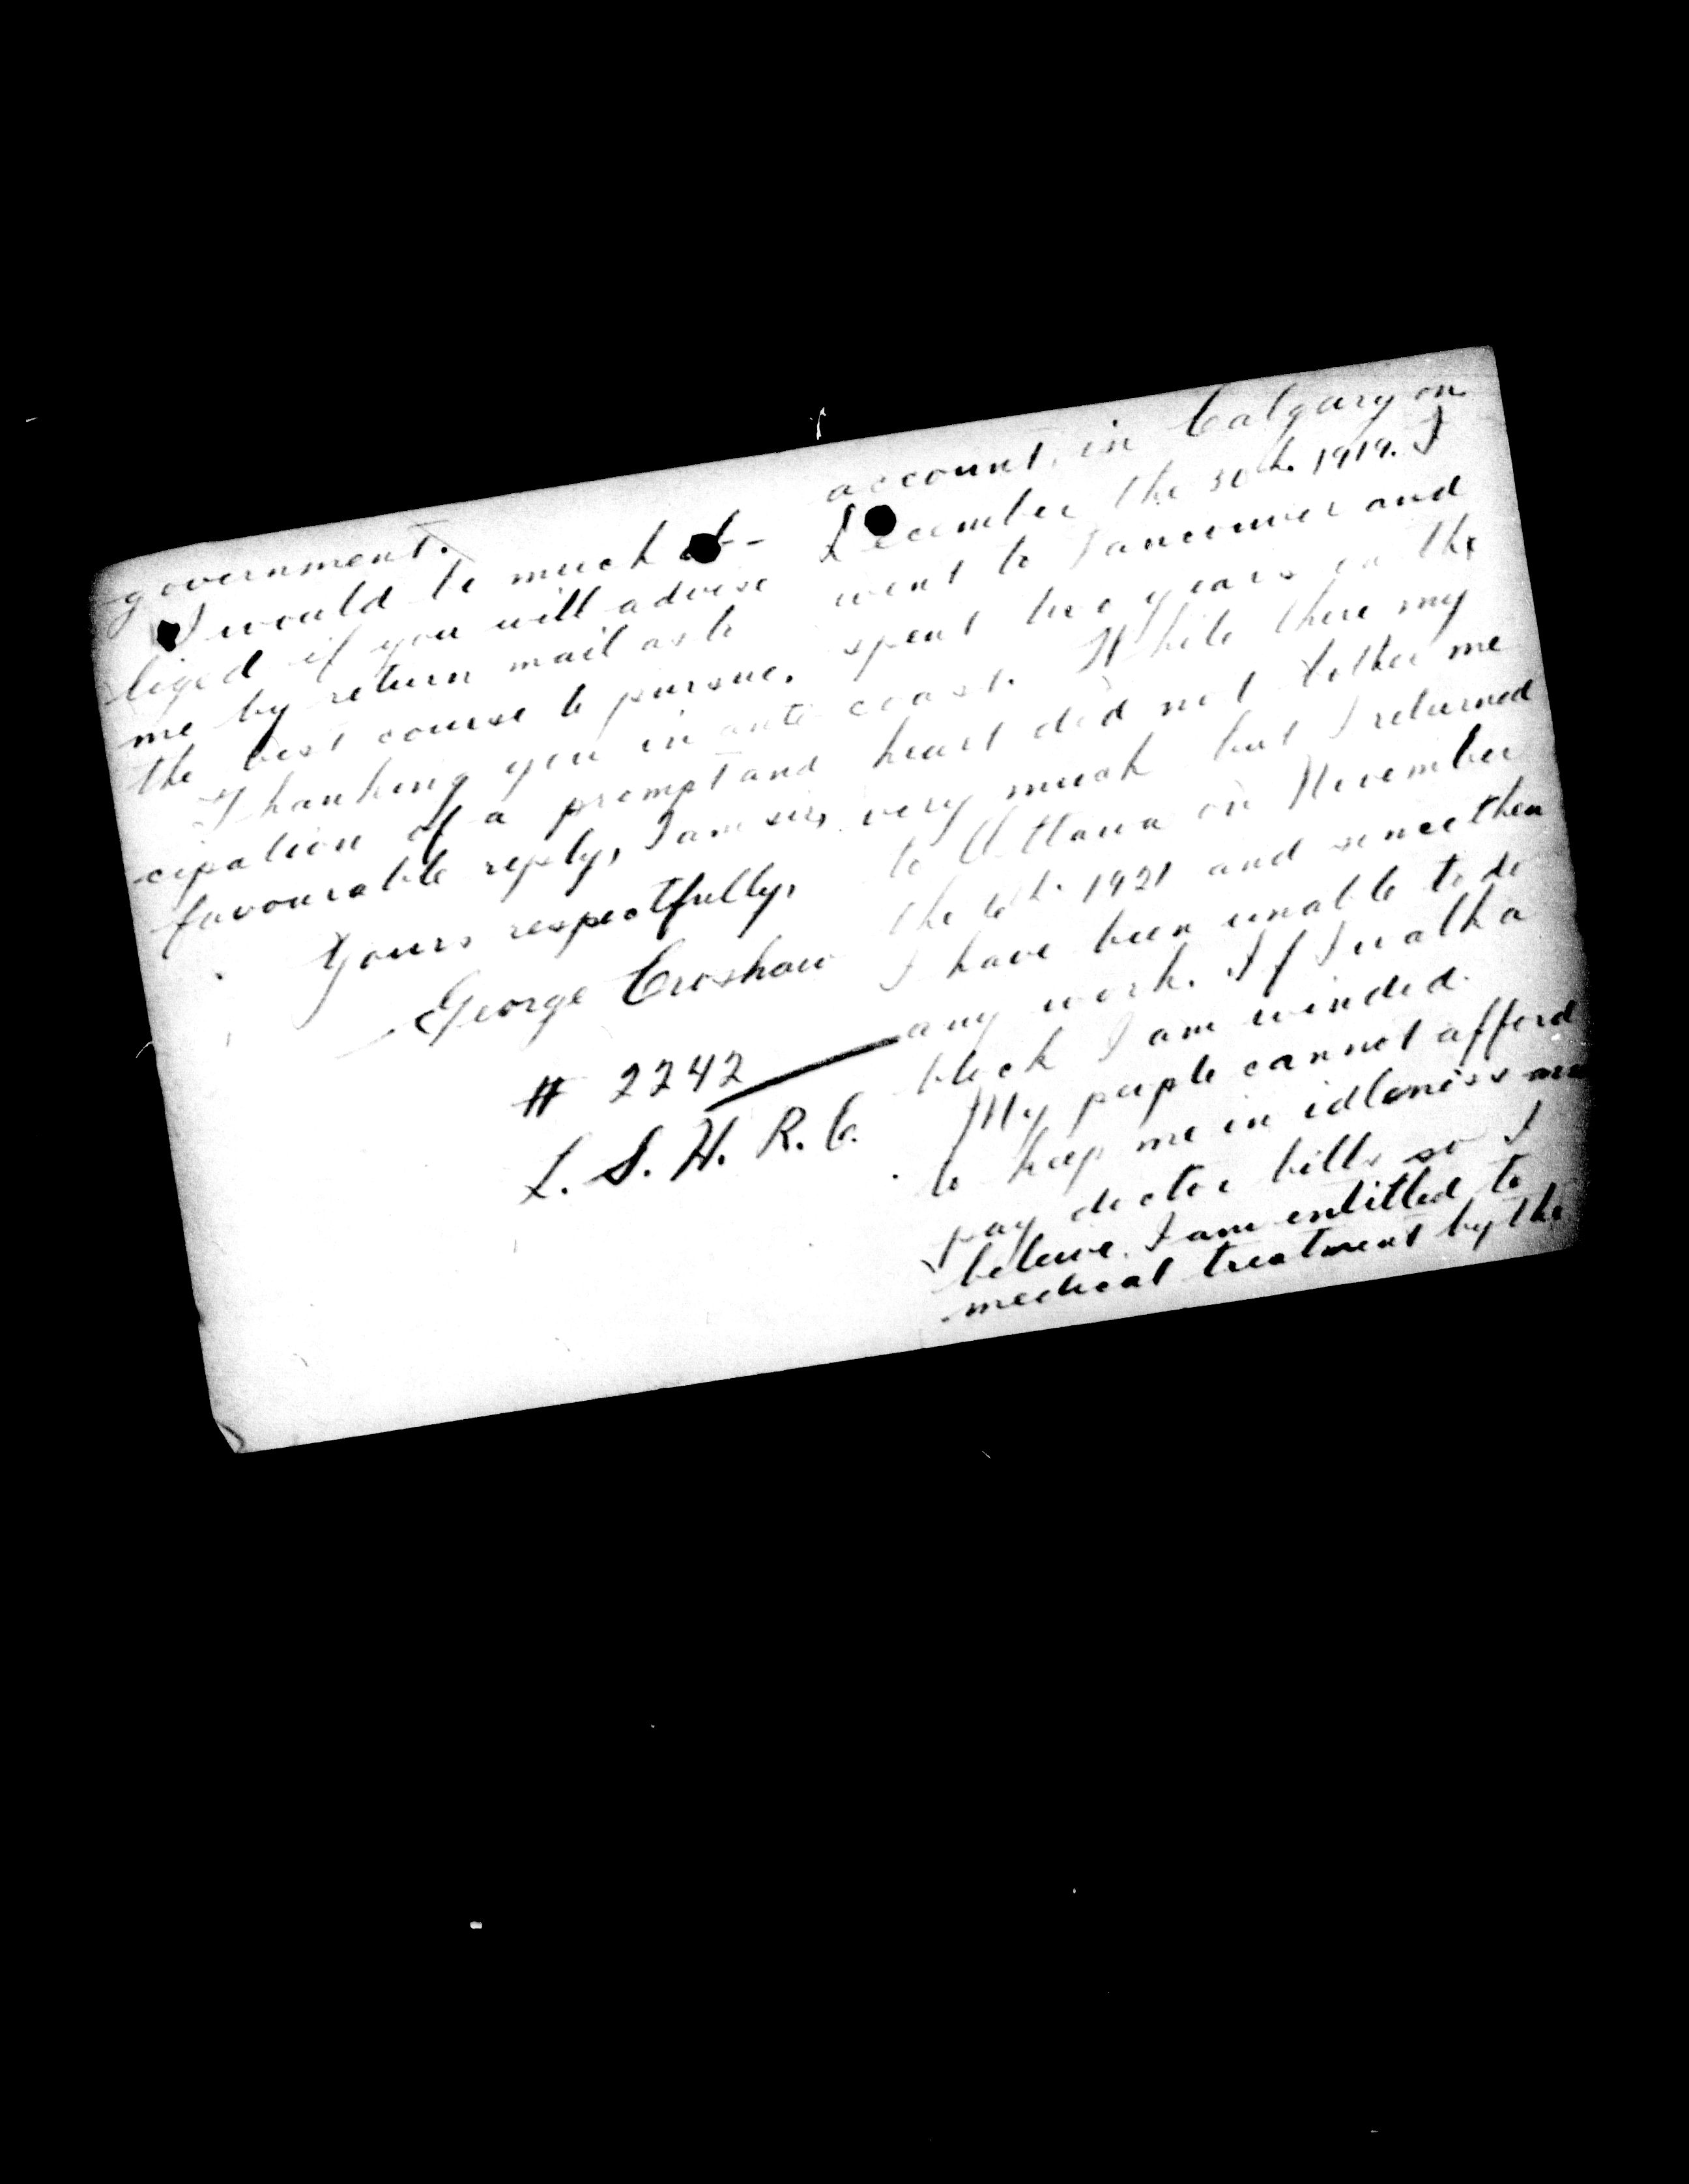 account, in Calgary on
December the 30th. 1919. I
went to Vancouver and
spent two years on the
coast. While there my
heart did not bother me
very much but I returned
to Ottawa on November
the 6th. 1921 and since then
I have been unable to do
any work. If I walk a
block I am winded.
My people cannot afford
to keep me in idleness
pay doctor bills so I
beleive I am entitled to
medical treatment by the
government.
I would be much ob-
liged if you will advise
me by return mail as to
the best course to pursue.
Thanking you in anti
cipation of a prompt and
favourable reply, I am sir,
Yours respectfully,
George Croshaw
# 2242
L. S. H. R. C.